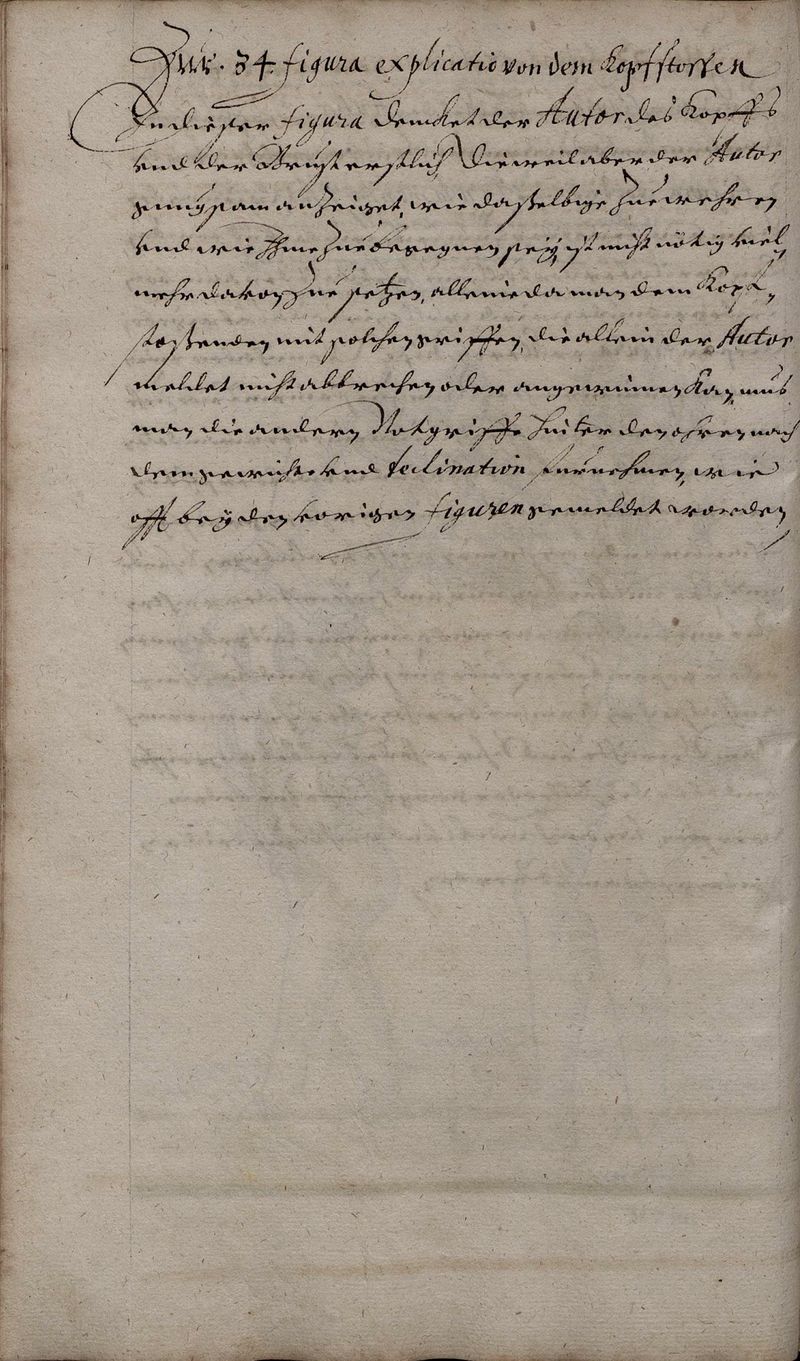 Zur. 34. figura explicatio von dem Kopfstossen
In dieser figura dencket der Autor des Kopffs
vnd der Brust erstlich dieweil aber der Autor
gnugsam anzeiget, wie dasselbige zue wehren
vnd wie Ihme zue begegnen seÿ, ist nicht nötig viel
mehr davon zue setzen, alleine da man dem Kopf
stossenden mit solchen griffen, die allein der Autor
meldet nicht abbrechen oder angewinnen kan, mus
man die andern Notgriffe hinter den ohren nach
dem gewichte vnd declination furnehmen, wie
offt beÿ den vorigen figuren gemeldet worden